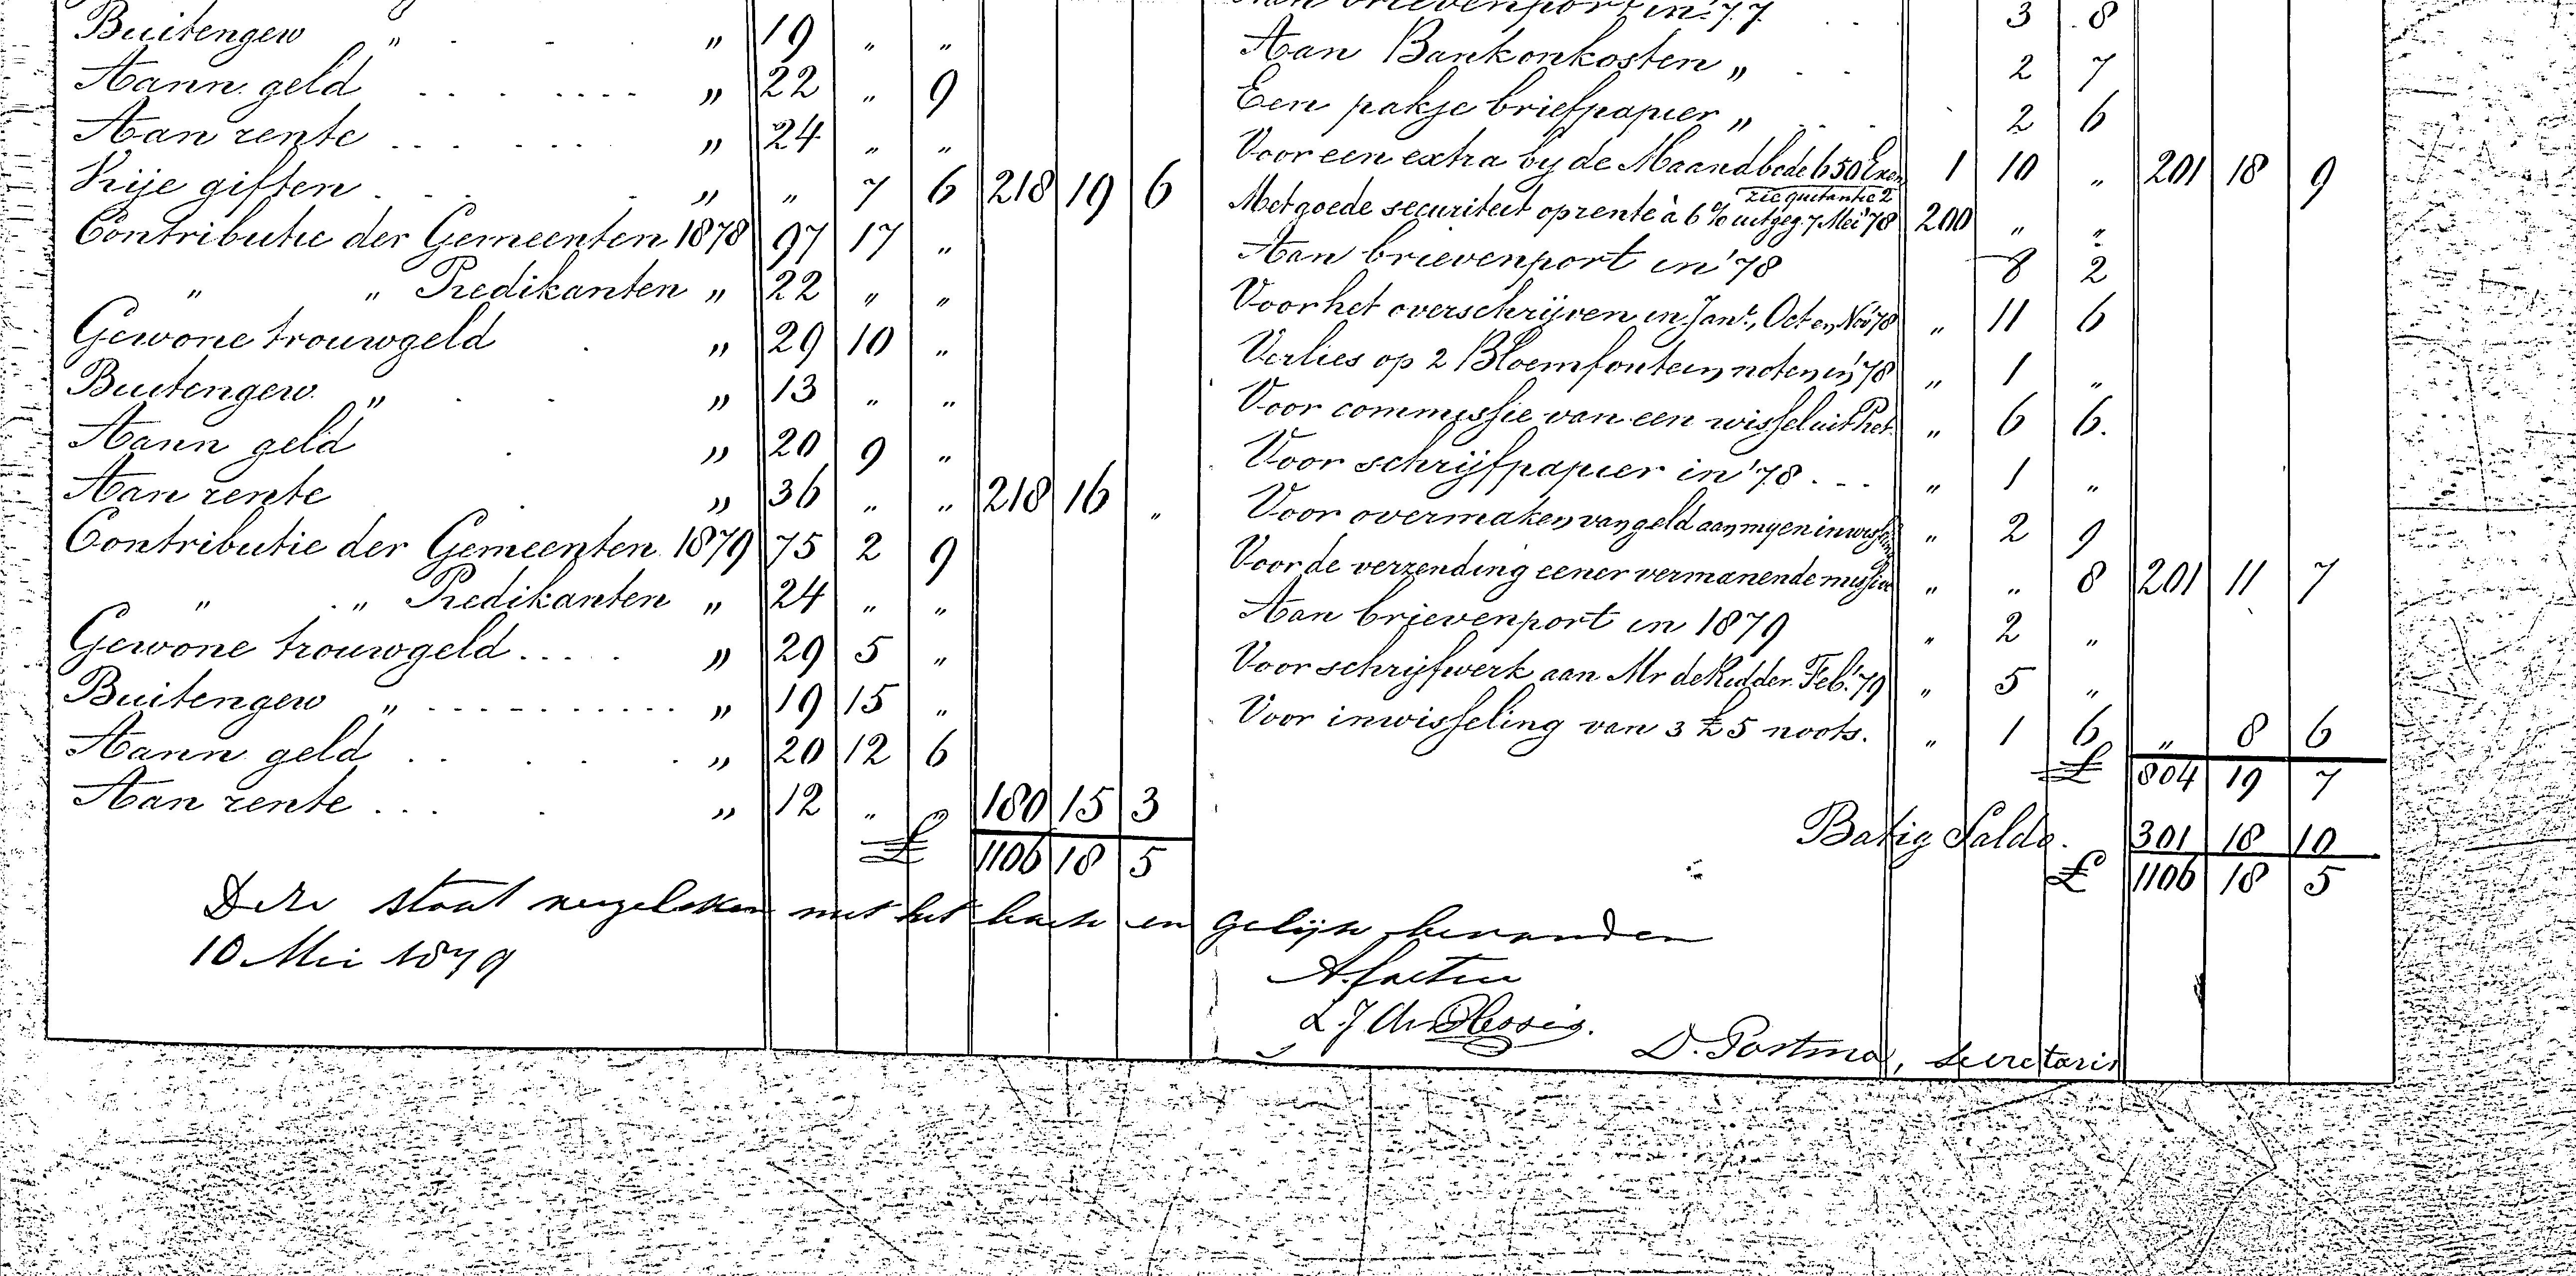 Buitengew " . . . " 19 " "
Aann. geld . . . . . . . " 22 " 9
Aan rente . . . . . . " 24 " "
Vrije giften . . . . " " 7 6 218 19 6
Contributie der Gemeenten 1878 97 17 "
" " Predikanten " 22 " "
Gewone trouwgeld . " 29 10 "
Buitengew. " . . " 13 " "
Aann geld . " 20 9 "
Aan rente . " 36 " " 218 16 "
Contributie der Gemeenten 1879 75 2 9
" " Predikanten " 24 " "
Gewone trouwgeld . . . . . " 29 5 "
Buitengew " . . . . . . . . . . " 19 15 "
Aann geld . . . . . " 20 12 6
Aan rente . . . . " 12 " " 180 15 3
£ 1106 18 5
Aan brievenport in '77 . . 3 8
Aan Bankonkosten " . . 2 7
Een pakje briefpapier " . . . 2 6
Voor een extra by de Maandbode 650 Exem 1 10 " 201 18 9
zie quitantie 2
Met goede securiteit op rente à 6 % uitgeg. 7 Mei '78 200 " "
Aan brievenport in '78 8 2
Voor het overschrijven in Jan., Oct en Nov '78 " 11 6
Verlies op 2 Bloemfontein noten in '78 " 1 "
Voor commissie van een wissel uit Pret. " 6 6.
Voor schrijfpapier in '78 . . . " 1 "
Voor overmaken van geld aan my en inwisseling " 2 9
Voor de verzending eener vermanende missive " " 8 201 11 7
Aan brievenport in 1879 " 2 "
Voor schrijfwerk aan Mr de Ridder. Feb. '79 " 5 "
Voor inwisseling van 3 £ 5 noots. " 1 6 " 8 6
£ 804 19 7
Batig Saldo. 301 18 10
£ 1106 18 5
Deze staat vergeleken met het boek en gelijk bevonden
10 Mei 1879
L. J du Plessis.
D. Postma, secretaris